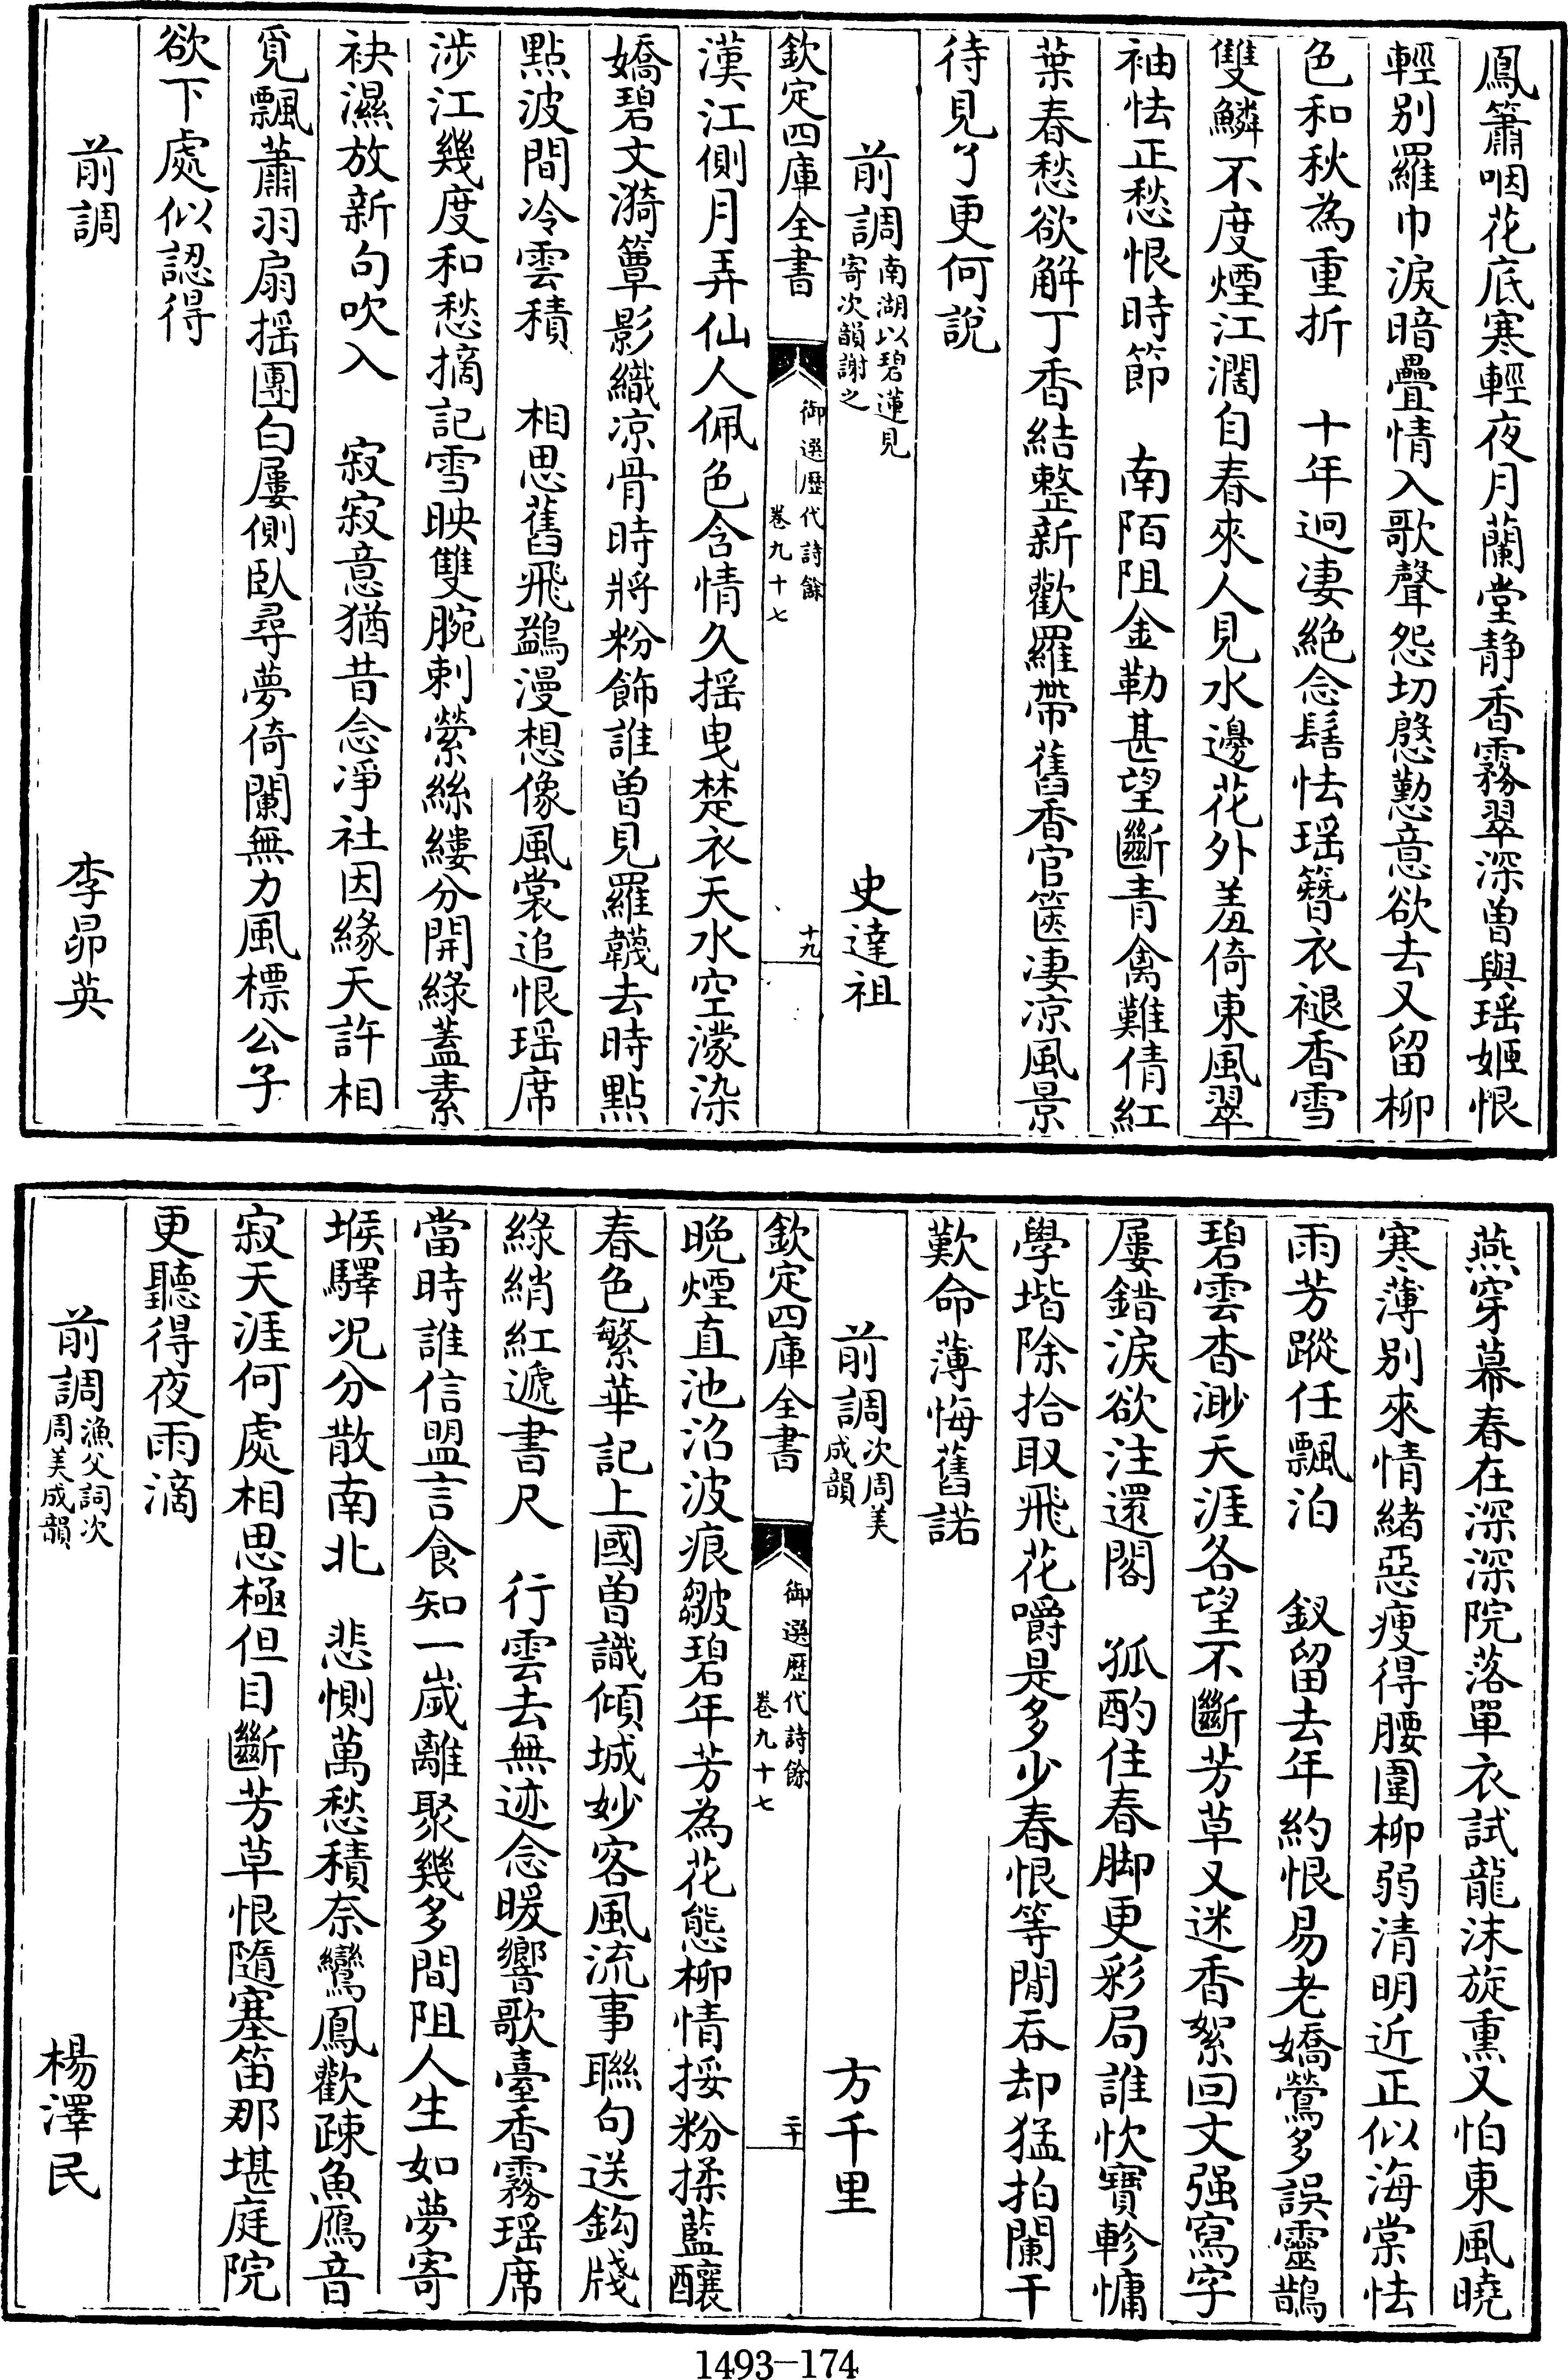 鳳簫咽花底寒輕夜月蘭堂静香霧翠深曽與瑶姬恨
輕别羅巾淚暗疊情入歌聲怨切慇懃意欲去又留柳
色和秋為重折　十年迥凄絶念髻怯瑶簪衣褪香雪
雙鱗不度煙江濶自春來人見水邊花外羞倚東風翠
袖怯正愁恨時節　南陌阻金勒甚望斷青禽難倩紅
葉春愁欲解丁香結整新歡羅帶舊香宫篋凄凉風景
待見了更何說
前調南湖以碧蓮見寄次韻謝之　史達祖
欽定四庫全書　御選歷代詩餘　卷九十七　十九
漢江側月弄仙人佩色含情久揺曳楚衣天水空濛染
嬌碧文漪簟影織凉骨時將粉飾誰曽見羅韈去時點
點波間冷雲積　相思舊飛鷁漫想像風裳追恨瑶席
涉江幾度和愁摘記雪映雙腕刺縈絲縷分開緑蓋素
袂濕放新句吹入　寂寂意猶昔念凈社因緣天許相
覓飄蕭羽扇揺團白屢側臥尋夢倚闌無力風標公子
欲下處似認得
前調　李昴英
燕穿幕春在深深院落單衣試龍沫旋熏又怕東風曉
寒薄别來情緒惡瘦得腰圍柳弱清明近正似海棠怯
雨芳蹤任飄泊　釵留去年約恨易老嬌鶯多誤靈鵲
碧雲杳渺天涯各望不斷芳草又迷香絮回文强寫字
屢錯淚欲注還閣　孤酌住春脚更彩局誰忺寶軫慵
學堦除拾取飛花嚼是多少春恨等閒吞却猛拍闌干
歎命薄悔舊諾
前調次周美成韻　方千里
欽定四庫全書　御選歷代詩餘　卷九十七　二十
晩煙直池沼波痕皺碧年芳為花態柳情挼粉揉藍釀
春色繁華記上國曽識傾城妙客風流事聯句送鈎牋
緑綃紅遞書尺　行雲去無迹念暖響歌臺香霧瑶席
當時誰信盟言食知一歲離聚幾多間阻人生如夢寄
堠驛况分散南北　悲惻萬愁積奈鸞鳳歡疎魚鴈音
寂天涯何處相思極但目斷芳草恨隨塞笛那堪庭院
更聽得夜雨滴
前調漁父詞次周美成韻　楊澤民
1493-174